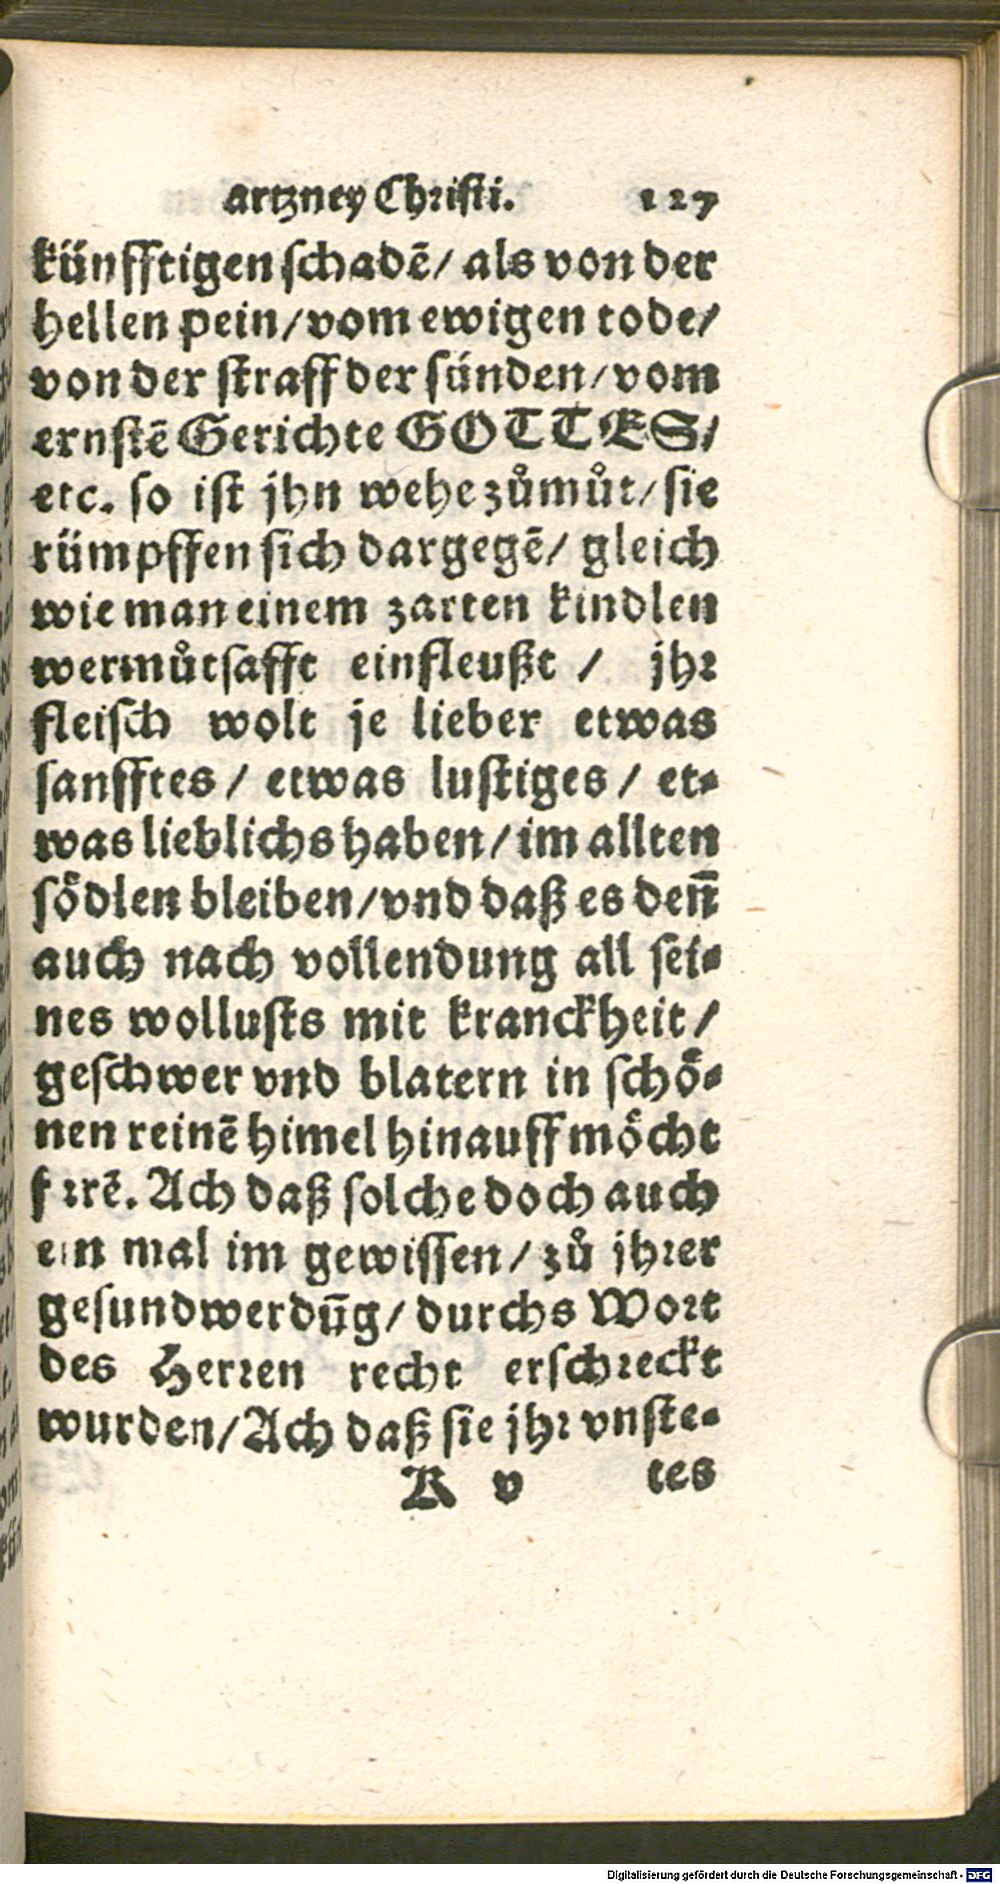 artzney Christi. 127
künfftigen schadẽ/ als von der
hellen pein/vom ewigen tode/
von der straff der sünden/vom
ernstẽ Gerichte GOTTES/
etc. so ist jhn wehe zůmůt/sie
rümpffen sich dargegẽ/ gleich
wie man einem zarten kindlen
wermůtsafft einfleußt / jhr
fleisch wolt je lieber etwas
sanfftes / etwas lustiges / et-
was lieblichs haben/im allten
södlen bleiben/vnd daß es deñ
auch nach vollendung all sei-
nes wollusts mit kranckheit/
geschwer vnd blatern in schö-
nen reinẽ himel hinauff möcht
farẽ. Ach daß solche doch auch
ein mal im gewissen/zů jhrer
gesundwerdūg/durchs Wort
des Herren recht erschreckt
wurden/Ach daß sie jhr vnste-
R v tes
Digitalisierung gefördert durch die Deutsche Forschungsgemeinschaft - DFG